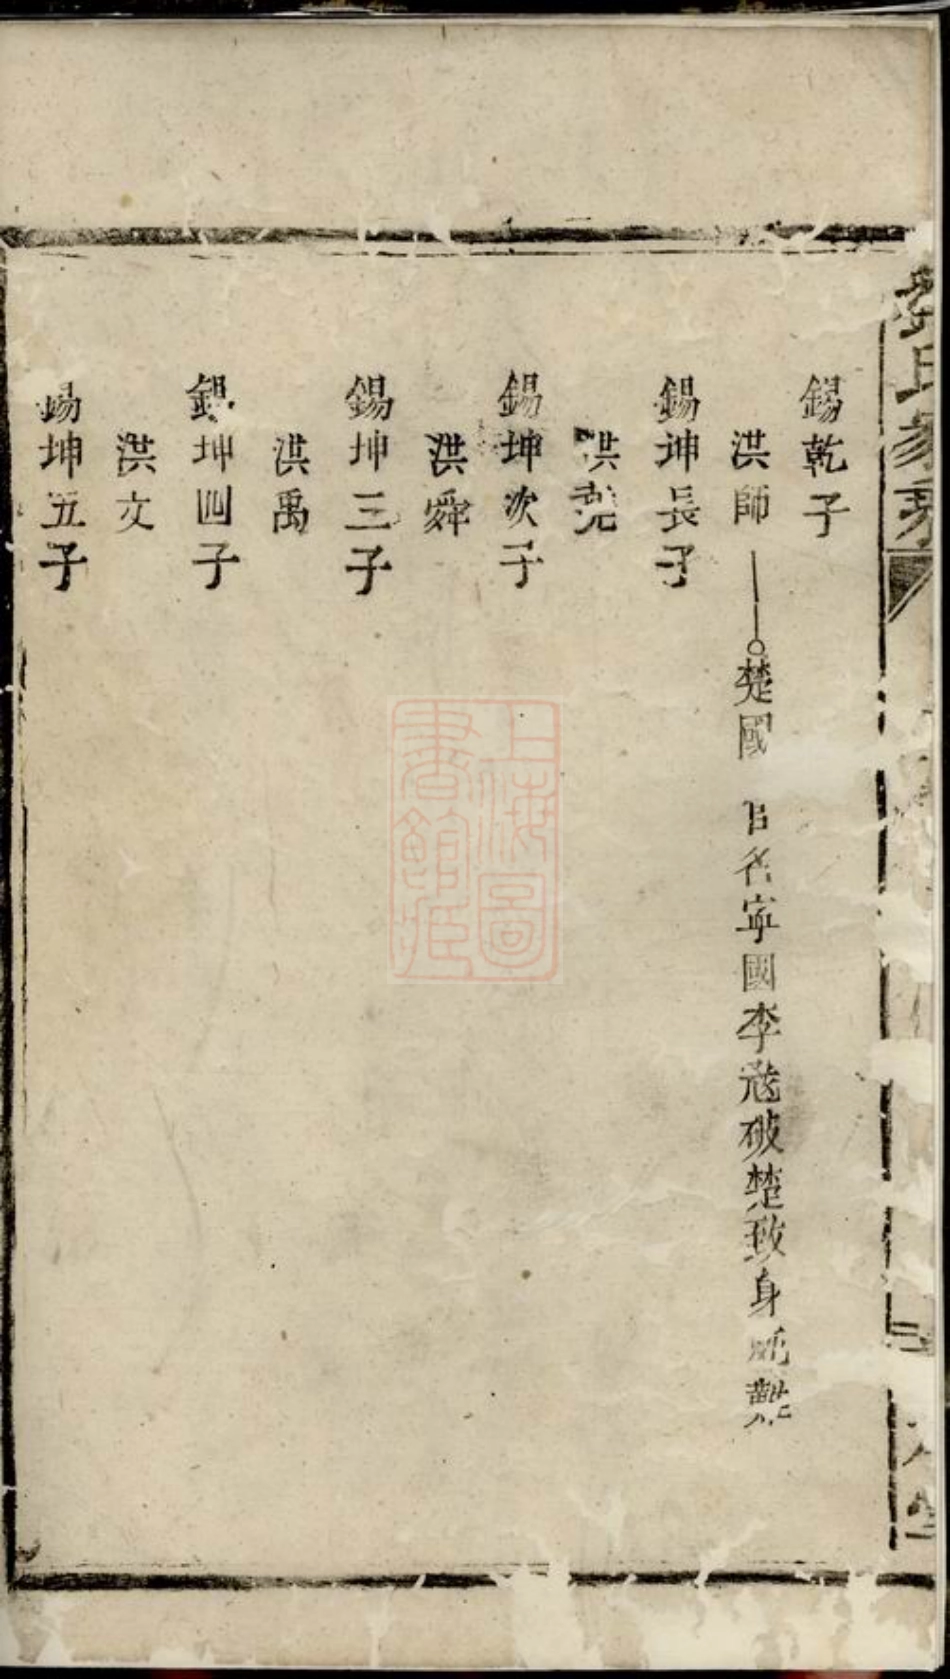 氏家乘
錫乾子
洪師 楚國 官名寧國李寇破楚致身
錫坤長子
洪堯
錫坤次子
洪舜
錫坤三子
洪禹
錫坤四子
洪文
錫坤五子
上海圖
書館藏